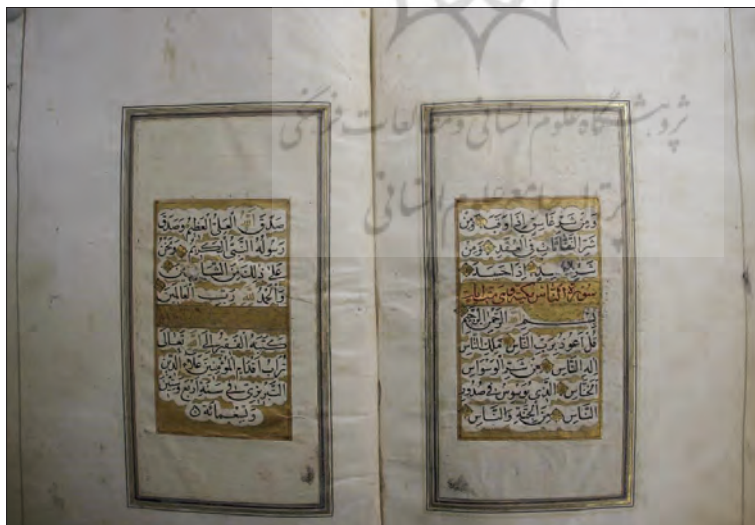 پژوهشگاه علوم انسانی و مطالعات فرهنگی
پرتال جامع علوم انسانی
وَمِن شَرِّ غَاسِقٍ إِذَا وَقَبَ وَمِن
شَرِّ النَّفَّاثَاتِ فِي الْعُقَدِ وَمِن
شَرِّ حَاسِدٍ إِذَا حَسَدَ
سورة الناس مكية وهي ست آيات
بِسْمِ اللهِ الرَّحْمٰنِ الرَّحِيمِ
قُلْ أَعُوذُ بِرَبِّ النَّاسِ مَلِكِ النَّاسِ
إِلَهِ النَّاسِ مِن شَرِّ الْوَسْوَاسِ
الْخَنَّاسِ الَّذِي يُوَسْوِسُ فِي صُدُورِ
النَّاسِ مِنَ الْجِنَّةِ وَالنَّاسِ
صَدَقَ اللهُ الْعَلِيُّ الْعَظِيمُ وَصَدَقَ
رَسُولُهُ النَّبِيُّ الْكَرِيمُ وَنَحْنُ
عَلَى ذَلِكَ مِنَ الشَّاهِدِينَ
وَالْحَمْدُ لِلهِ رَبِّ الْعَالَمِينَ
كتبه الفقير إلى الله تعالى
تراب اقدام المؤمنين علاء الدين
التبريزي في سنة اربع
وتسعمائة